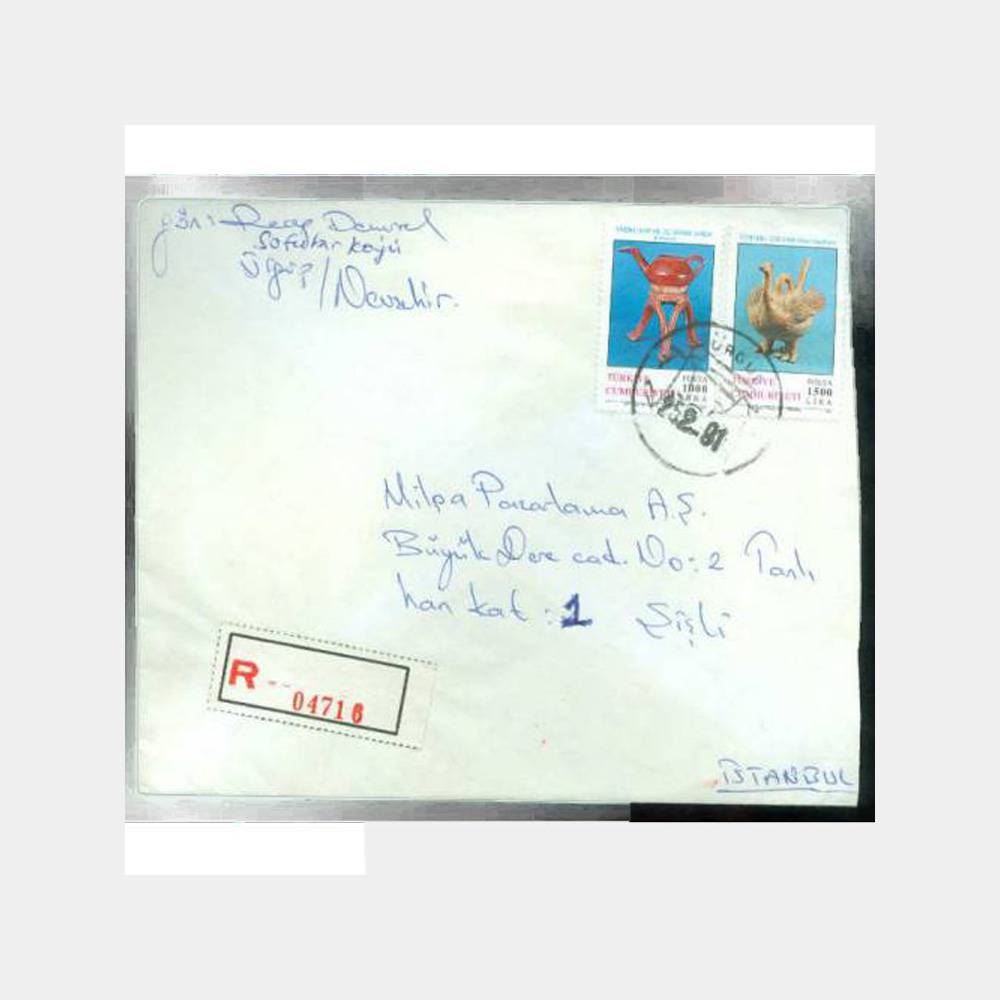 gön: Recep Demirel
Sofular köyü
Ürgüp/Nevşehir.
TÜRKİYE
CUMHURİYETİ
POSTA
1000
LİRA
TÜRKİYE
CUMHURİYETİ
POSTA
1500
LİRA
ÜRGÜ
-2-91
Milpa Pazarlama A.Ş.
Büyük Dere cad. No: 2 Tanlı
han kat : 1 Şişli
R--
04716
İSTANBUL